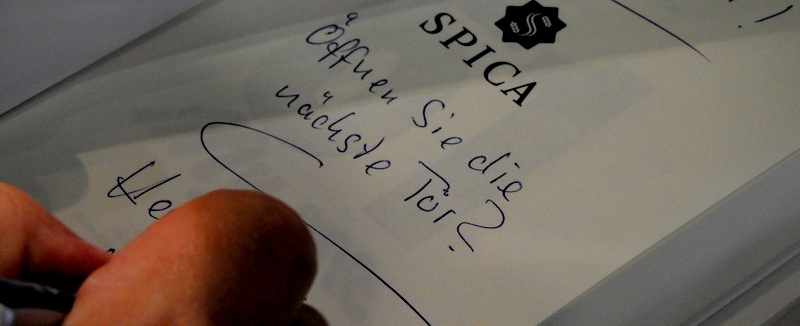 SPICA
Öffnen Sie die
nächste Tür?
He